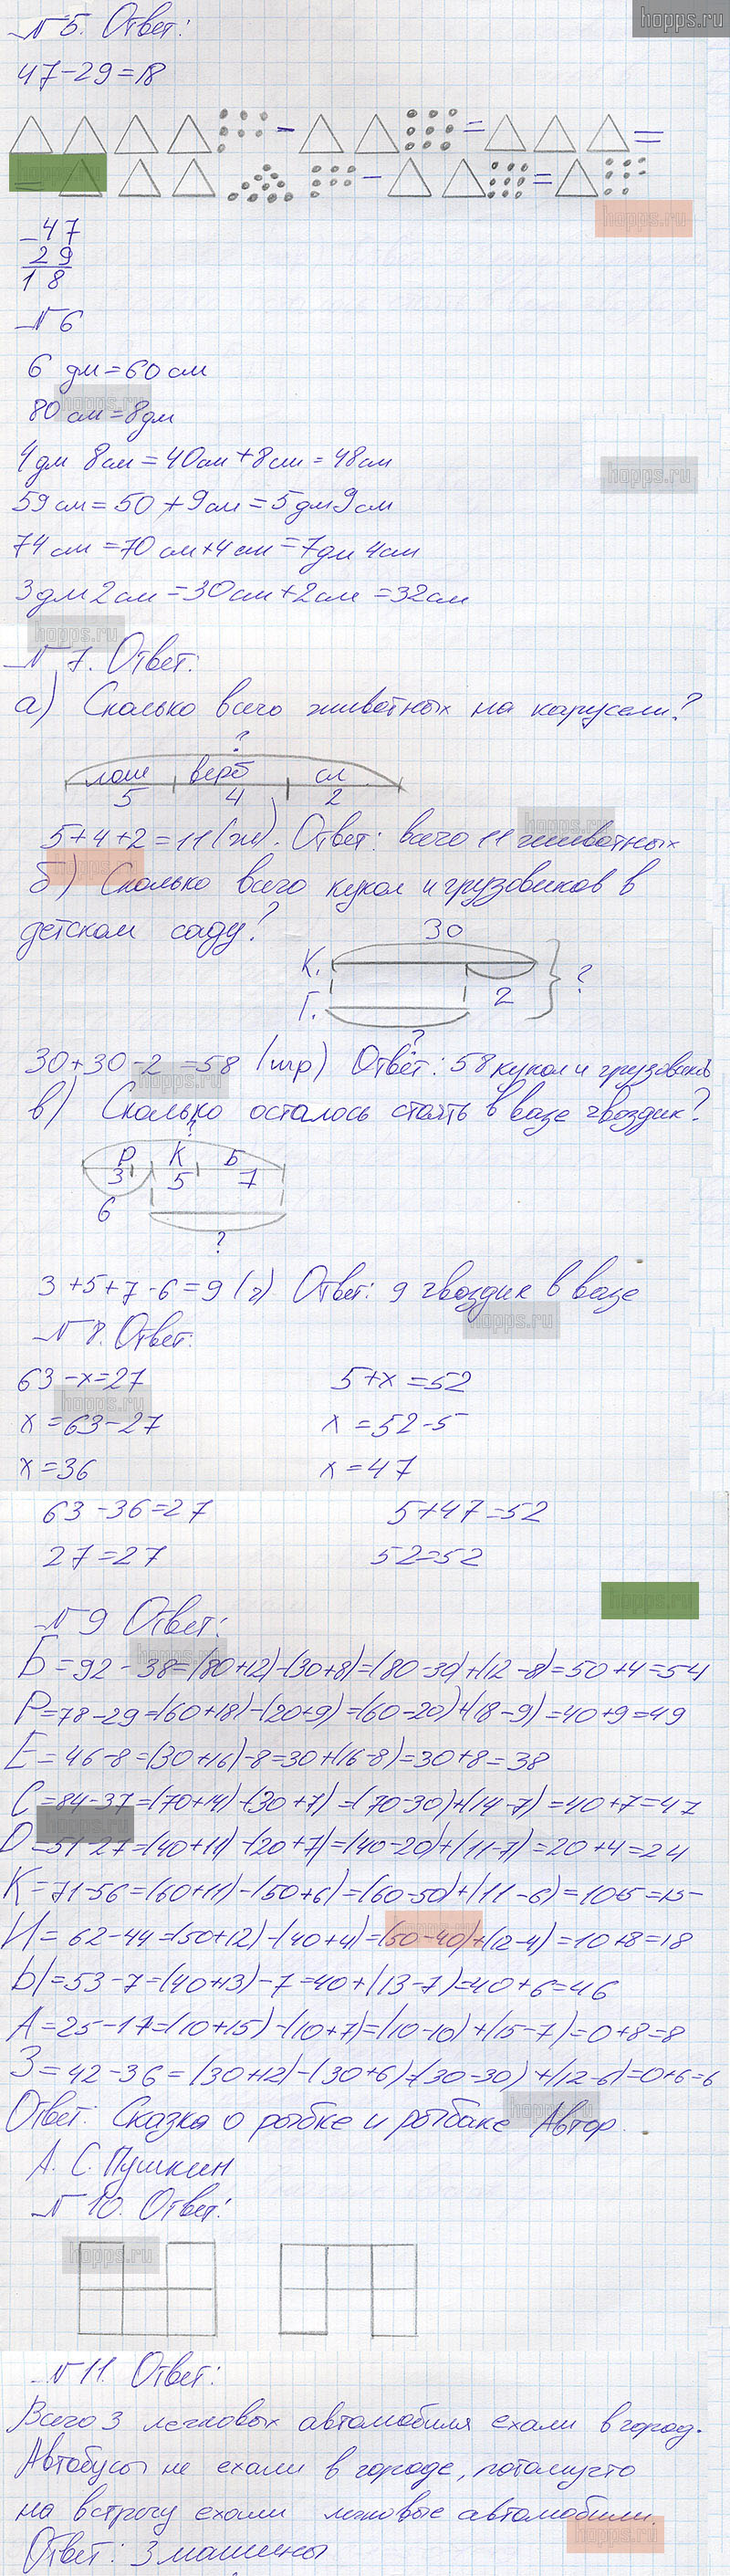 hopps.ru
№5. Ответ:
47-29=18
- = =
= - =
hopps.ru
-47
29
18
№6
6 дм=60см
80 см=8дм
4дм 8см=40см+8см=48см
hopps.ru
59см=50+9см=5дм9см
74см=70см+4см=7дм4см
3дм2см=30см+2см=32см
hopps.ru
№7. Ответ:
а) Сколько всего животных на карусели?
?
лош верб сл
5 4 2
5+4+2=11(ж). Ответ: всего 11 животных
б) Сколько всего кукол и грузовиков в
детском саду?
30
К.
2 ?
Г.
?
30+30-2=58 (игр) Ответ: 58 кукол и грузовиков
в) Сколько осталось стоять в вазе гвоздик?
?
Р К Б
3 5 7
6
?
3+5+7-6=9(г) Ответ: 9 гвоздик в вазе
hopps.ru
№8. Ответ:
63-х=27 5+х=52
х=63-27 х=52-5
х=36 х=47
63-36=27 5+47=52
27=27 52=52
hopps.ru
№9 Ответ:
Б=92-38=(80+12)-(30+8)=(80-30)+(12-8)=50+4=54
Р=78-29=(60+18)-(20+9)=(60-20)+(18-9)=40+9=49
Е=46-8=(30+16)-8=30+(16-8)=30+8=38
С=84-37=(70+14)-(30+7)=(70-30)+(14-7)=40+7=47
О=51-27=(40+11)-(20+7)=(40-20)+(11-7)=20+4=24
К=71-56=(60+11)-(50+6)=(60-50)+(11-6)=10+5=15
И=62-44=(50+12)-(40+4)=(50-40)+(12-4)=10+8=18
Ы=53-7=(40+13)-7=40+(13-7)=40+6=46
А=25-17=(10+15)-(10+7)=(10-10)+(15-7)=0+8=8
З=42-36=(30+12)-(30+6)=(30-30)+(12-6)=0+6=6
Ответ: Сказка о рыбке и рыбаке Автор
А. С. Пушкин
№10. Ответ:
hopps.ru
№11. Ответ:
Всего 3 легковых автомобиля ехали в город.
Автобусы не ехали в городе, потому что
на встречу ехали легковые автомобили.
hopps.ru
Ответ: 3 машины